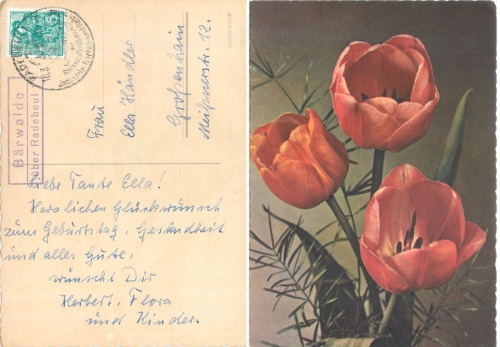 Bärwalde
über Radebeul
Frau
Ella Händler
Großenhain
Meißnerstr. 12.
Liebe Tante Ella!
Herzlichen Glückwunsch
zum Geburtstag, Gesundheit
und alles Gute,
wünscht Dir
Herbert, Flora
und Kinder.